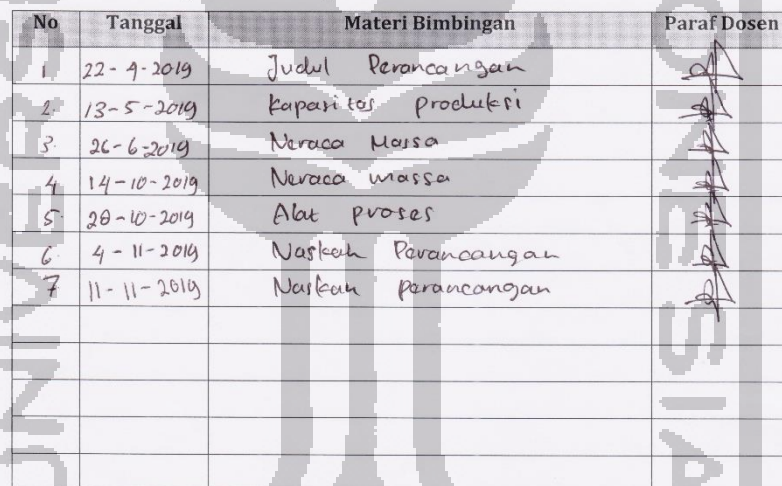 No Tanggal Materi Bimbingan Paraf Dosen
1. 22-4-2019 Judul Perancangan
2. 13-5-2019 Kapasitas produksi
3. 26-6-2019 Neraca Massa
4 14-10-2019 Neraca massa
5. 28-10-2019 Alat proses
6. 4-11-2019 Naskah Perancangan
7 11-11-2019 Naskah perancangan